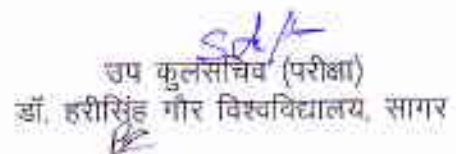 Sd/-
उप कुलसचिव (परीक्षा)
डॉ. हरीसिंह गौर विश्वविद्यालय, सागर